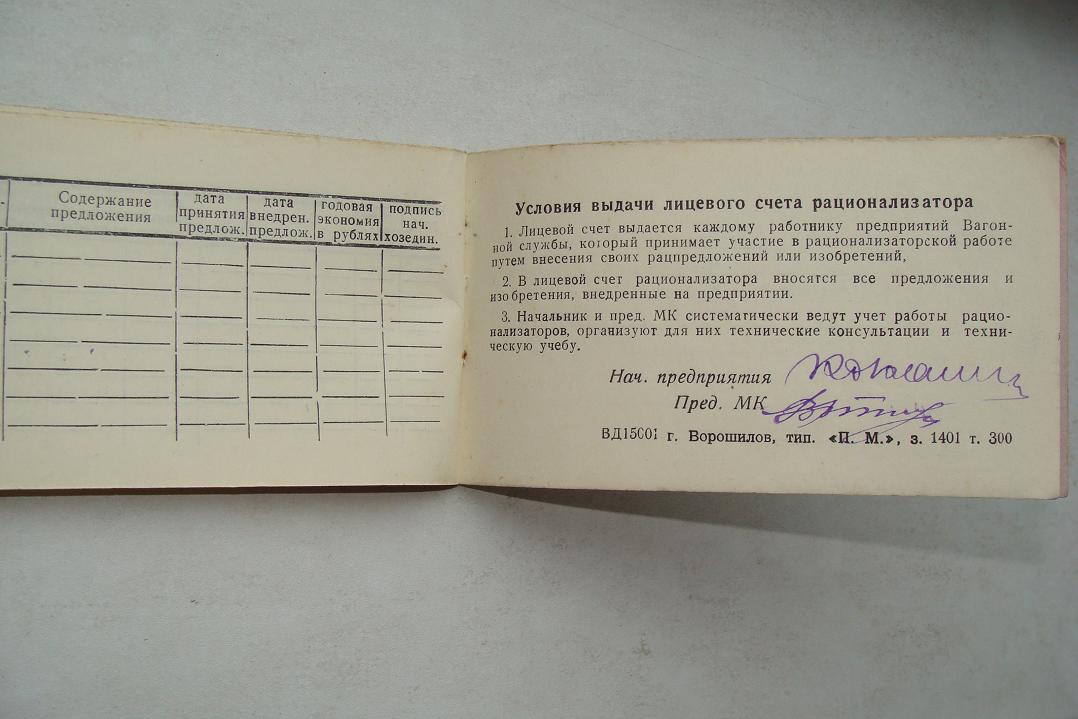 Содержание
предложения
дата
принятия
предлож.
дата
внедрен.
предлож.
годовая
экономия
в рублях
подпись
нач.
хозедин.
Условия выдачи лицевого счета рационализатора
1. Лицевой счет выдается каждому работнику предприятий Вагон-
ной службы, который принимает участие в рационализаторской работе
путем внесения своих рацпредложений или изобретений,
2. В лицевой счет рационализатора вносятся все предложения и
изобретения, внедренные на предприятии.
3. Начальник и пред. МК систематически ведут учет работы рацио-
нализаторов, организуют для них технические консультации и техни-
ческую учебу.
Нач. предприятия
Пред. МК
ВД15001 г. Ворошилов, тип. «П. М.», з. 1401 т. 300